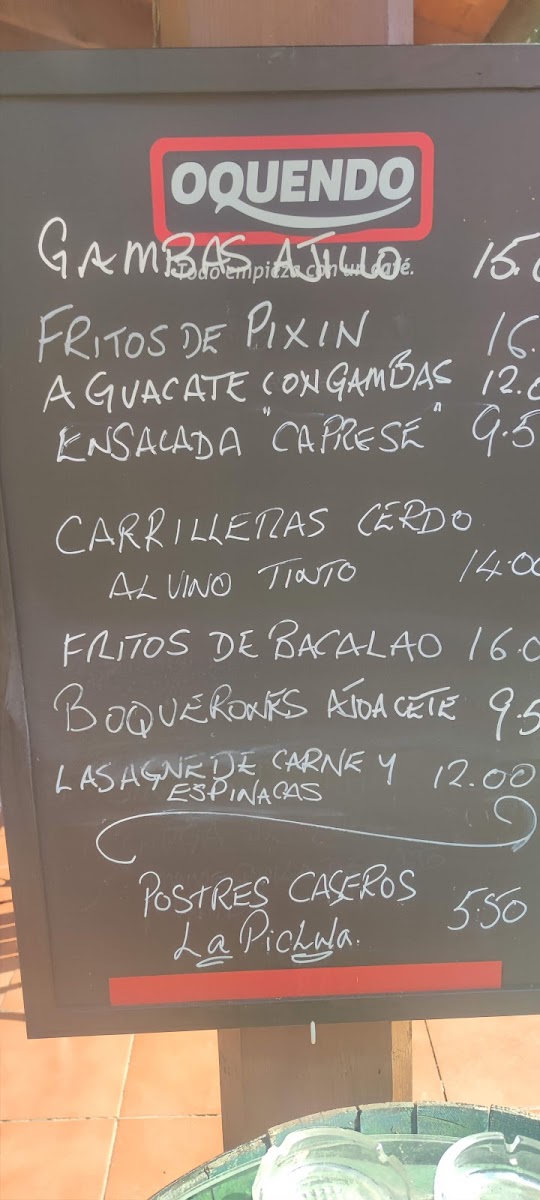 OQUENDO
Todo empieza con un café.
GAMBAS AJILLO 15.0
FRITOS DE PIXIN 16.
AGUACATE CON GAMBAS 12.0
ENSALADA "CAPRESE" 9.5
CARRILLERAS CERDO
AL VINO TINTO 14.00
FRITOS DE BACALAO 16.0
BOQUERONES AJOACEITE 9.5
LASAGNE DE CARNE Y 12.00
ESPINACAS
POSTRES CASEROS 5.50
La Pichula.